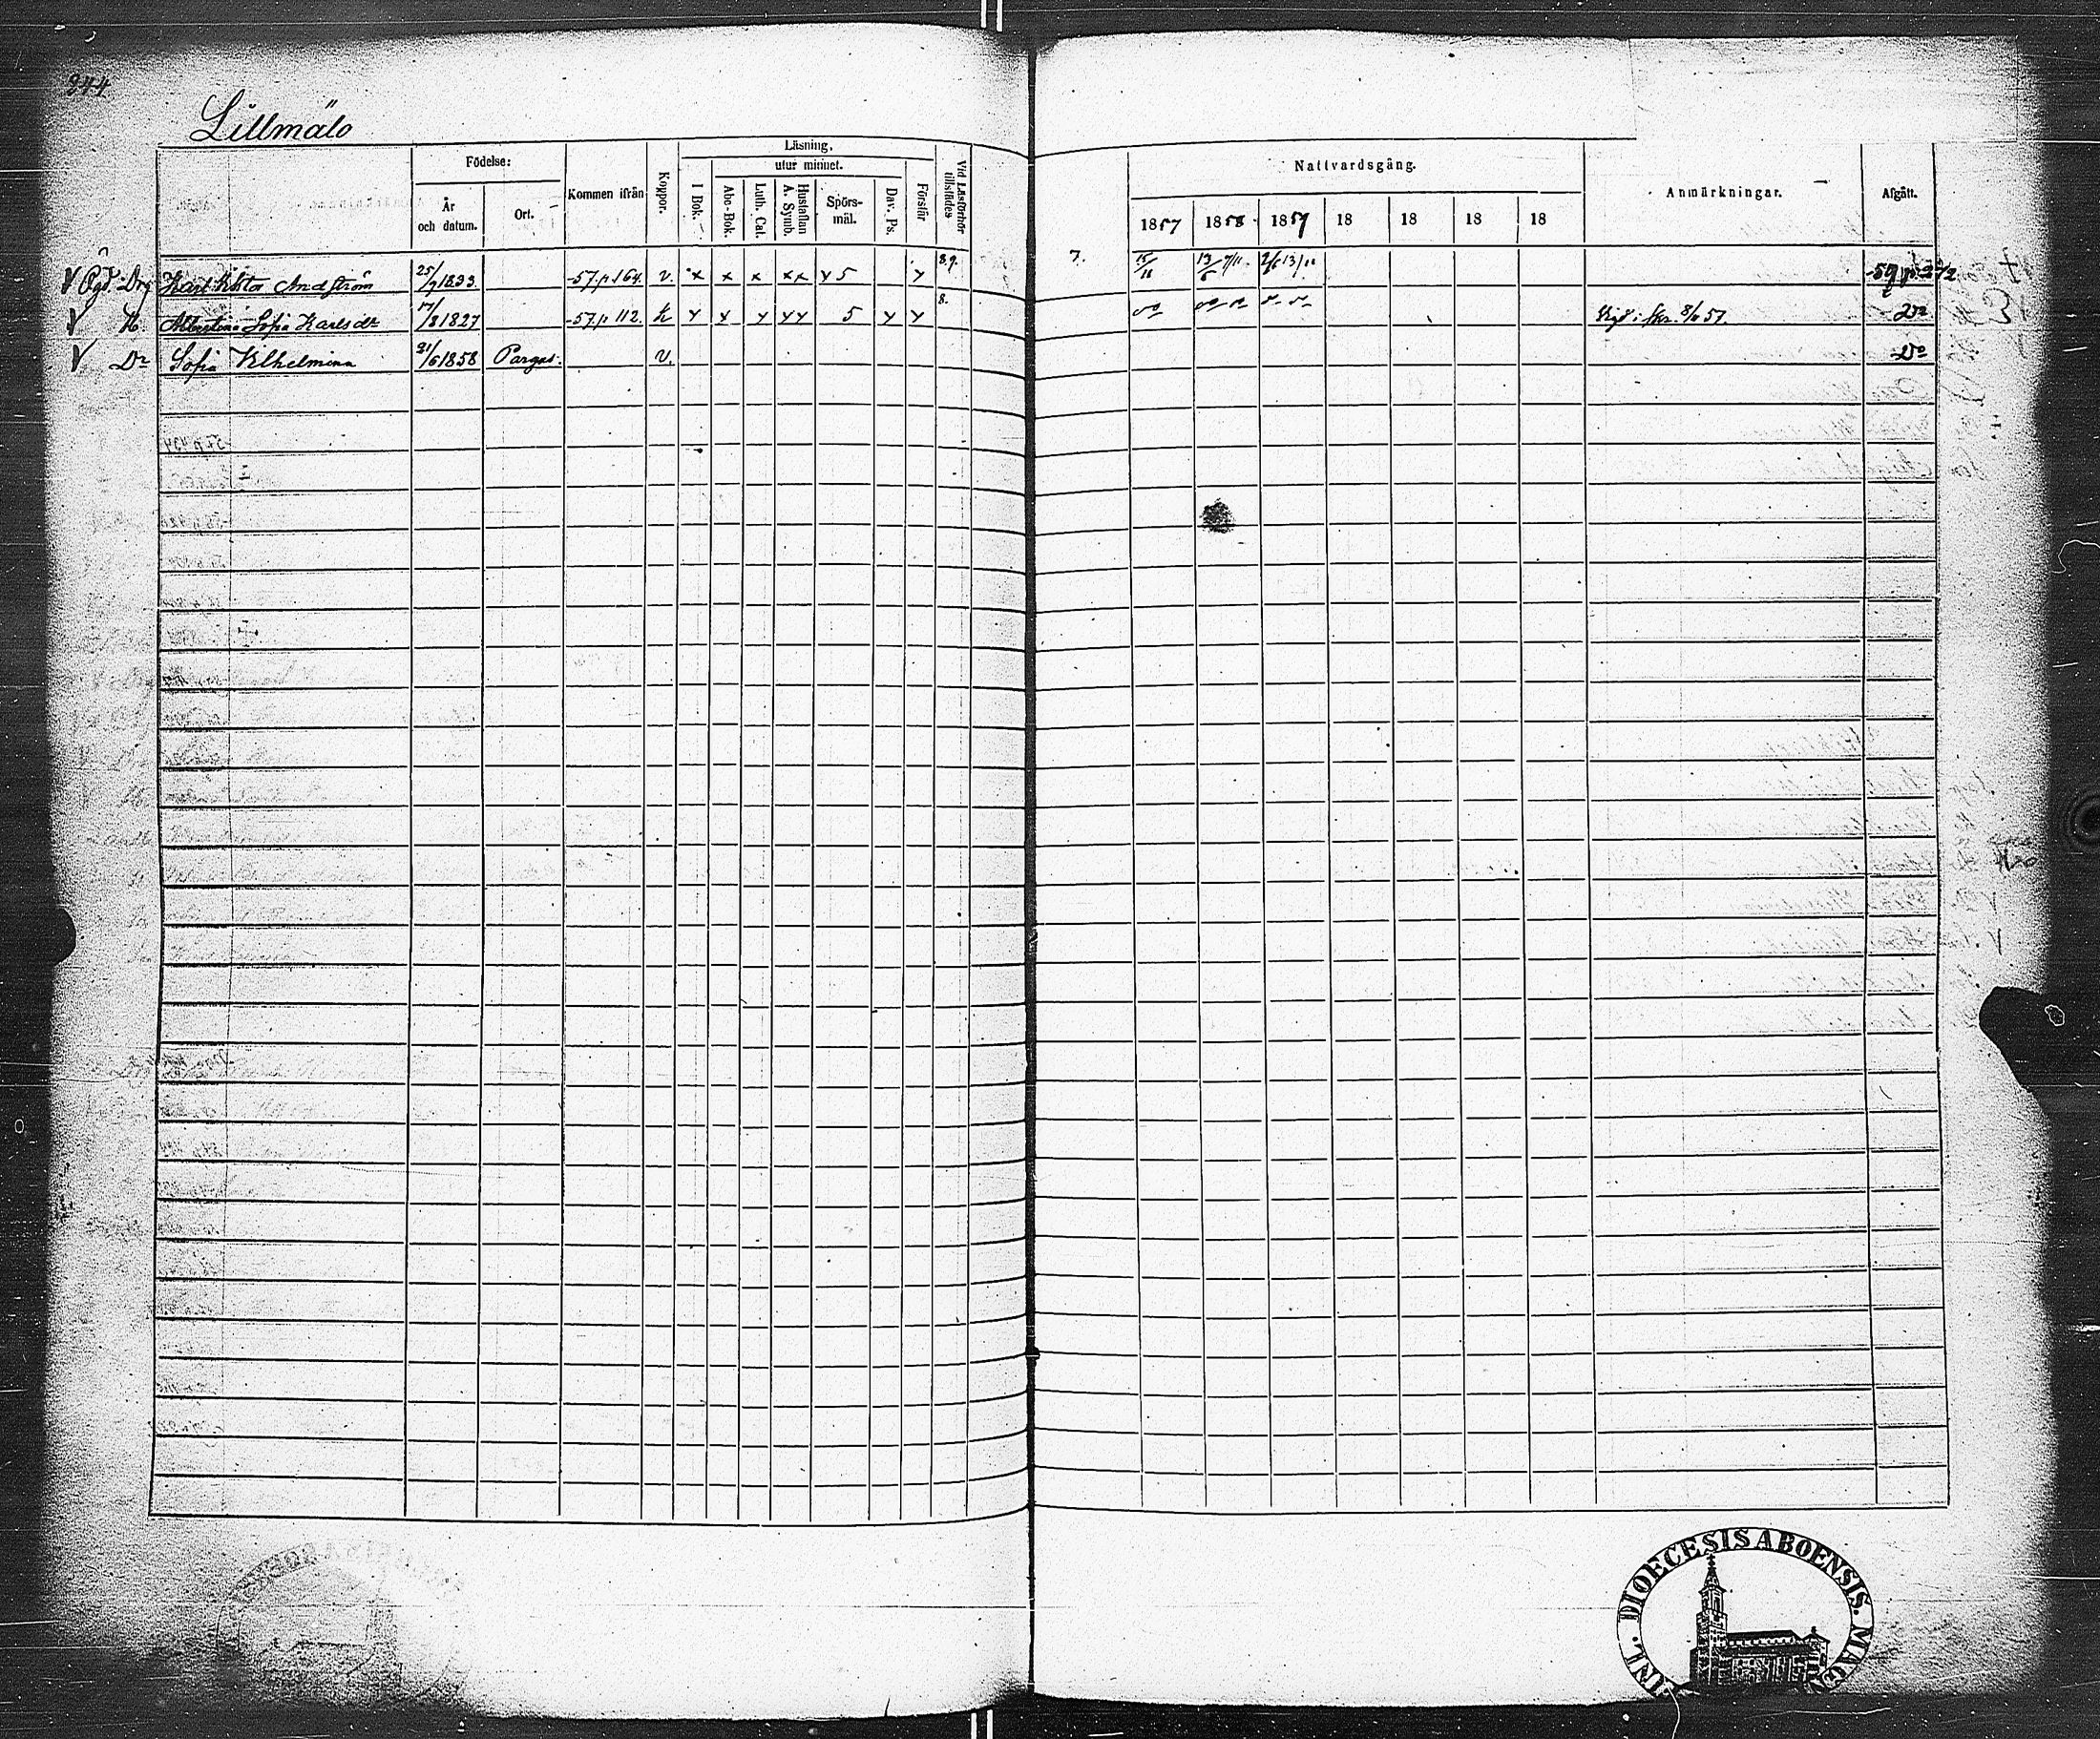 244
Lillmälö
Födelse: Kommen ifrån Koppor. Läsning, Vid Läsförhör tillstädes
År och datum. Ort. I Bok. utur minnet. Förstår
Abc-Bok. Luth. Cat. Hustaflan A. Symb. Spörsmål. Dav. Ps.
Nattvardsgång. Anmärkningar. Afgått.
1857 1858 1859 18 18 18 18
V Drg Karl Viktor Andström 25/9 1833. -57.p 164. v. x x x xx y 5 y 8.9. 7. 15/11 13/6 7/11 2/6 13/11
V H. Albertina Sofia Karlsdr 17/8 1827 -57.p 112. k y y y yy 5 y y 8. Vigd i 57. Do
V Dr Sofia Vilhelmina 21/6 1858 Pargas. v. Do
DIOECESIS ABOENSIS. MAG